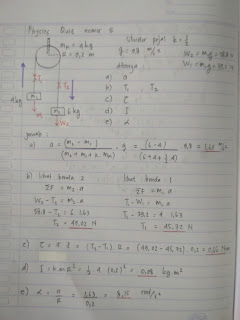 Physics Quiz nomer 5
mk = 4 kg
R = 0,2 m
Silinder pejal k = 1/2
g = 9,8 m/s²
W2 = m2g = 58,8 N
W1 = m1g = 39,2 N
4 kg
m1
m2
6 kg
T1
T2
W2
Ditanya :
a) a
b) T1 , T2
c) τ
d) I
e) α
Jawab :
a) a = (m2 - m1) / (m1 + m2 + k.mk) . g = (6 - 4) / (6 + 4 + 1/2 . 4) . 9,8 = 1,63 m/s²
b) lihat benda 2
ΣF = m2 . a
W2 - T2 = m2 . a
58,8 - T2 = 6 . 1,63
T2 = 49,02 N
lihat benda 1
ΣF = m1 . a
T1 - W1 = m1 . a
T1 - 39,2 = 4 . 1,63
T1 = 45,72 N
c) τ = (T2 - T1) R = (49,02 - 45,72) . 0,2 = 0,66 Nm
d) I = k m R² = 1/2 . 4 . (0,2)² = 0,08 kg.m²
e) α = a / R = 1,63 / 0,2 = 8,15 rad/s²